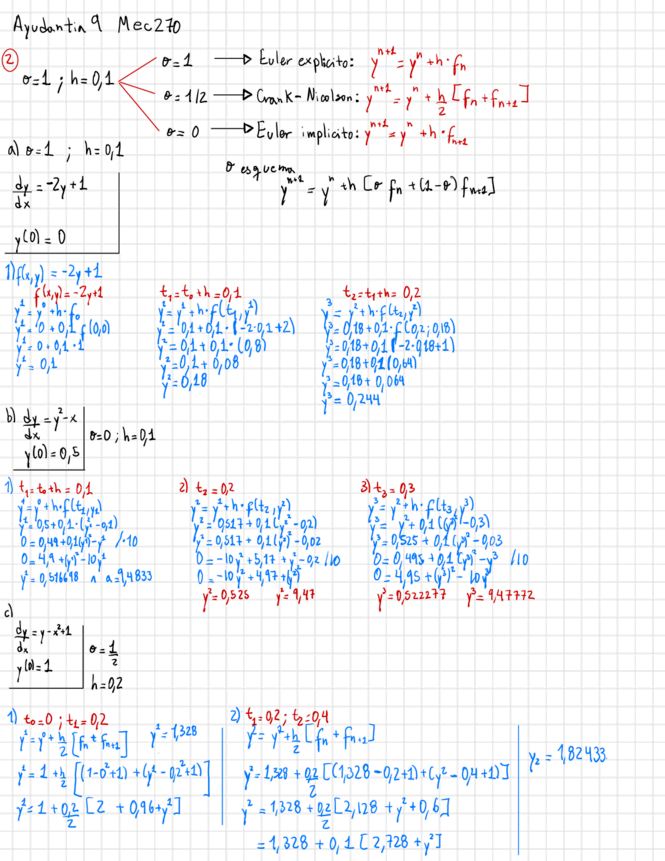 Ayudantia 9 Mec270
②
σ=1 ; h=0,1
σ=1 → Euler explicito: y^{n+1} = y^n + h·f_n
σ=1/2 → Crank-Nicolson: y^{n+1} = y^n + h/2 [f_n + f_{n+1}]
σ=0 → Euler implicito: y^{n+1} = y^n + h·f_{n+1}
a) σ=1 ; h=0,1
σ esquema
y^{n+1} = y^n + h [σ f_n + (1-σ) f_{n+1}]
dy/dx = -2y+1
y(0) = 0
1) f(x,y) = -2y+1
f(x,y) = -2y+1
y^1 = y^0 + h·f_0
y^1 = 0 + 0,1 f(0,0)
y^1 = 0 + 0,1·1
y^1 = 0,1
t_1 = t_0 + h = 0,1
y^2 = y^1 + h·f(t_1, y^1)
y^2 = 0,1 + 0,1·(-2·0,1+2)
y^2 = 0,1 + 0,1·(0,8)
y^2 = 0,1 + 0,08
y^2 = 0,18
t_2 = t_1 + h = 0,2
y^3 = y^2 + h·f(t_2, y^2)
y^3 = 0,18 + 0,1·f(0,2; 0,18)
y^3 = 0,18 + 0,1(-2·0,18+1)
y^3 = 0,18 + 0,1(0,64)
y^3 = 0,18 + 0,064
y^3 = 0,244
b) dy/dx = y^2 - x
y(0) = 0,5
σ=0 ; h=0,1
1) t_1 = t_0 + h = 0,1
y^1 = y^0 + h·f(t_1, y_1)
y^1 = 0,5 + 0,1·(y^2 - 0,1)
0 = 0,49 + 0,1(y^1)^2 - y^1 /·10
0 = 4,9 + (y^1)^2 - 10y^1
y^1 = 0,516698 ∧ a = 9,4833
2) t_2 = 0,2
y^2 = y^1 + h·f(t_2, y^2)
y^2 = 0,517 + 0,1(y^2 - 0,2)
y^2 = 0,517 + 0,1(y^2) - 0,02
0 = -10y^2 + 5,17 + y^2 - 0,2 /10
0 = -10y^2 + 4,97 + (y^2)^2
y^2 = 0,525 y^2 = 9,47
3) t_3 = 0,3
y^3 = y^2 + h·f(t_3, y^3)
y^3 = y^2 + 0,1((y^3)^2 - 0,3)
y^3 = 0,525 + 0,1(y^3)^2 - 0,03
0 = 0,495 + 0,1(y^3)^2 - y^3 /10
0 = 4,95 + (y^3)^2 - 10y^3
y^3 = 0,522277 y^3 = 9,47772
c)
dy/dx = y - x^2 + 1
y(0) = 1
σ = 1/2
h = 0,2
1) t_0 = 0 ; t_1 = 0,2
y^1 = y^0 + h/2 [f_n + f_{n+1}] y^1 = 1,328
y^1 = 1 + h/2 [(1-0^2+1) + (y^1 - 0,2^2+1)]
y^1 = 1 + 0,2/2 [2 + 0,96 + y^1]
2) t_1 = 0,2 ; t_2 = 0,4
y^2 = y^2 + h/2 [f_n + f_{n+1}]
y^2 = 1,328 + 0,2/2 [(1,328 - 0,2+1) + (y^2 - 0,4+1)]
y^2 = 1,328 + 0,2/2 [2,128 + y^2 + 0,6]
= 1,328 + 0,1 [2,728 + y^2]
y_2 = 1,82433